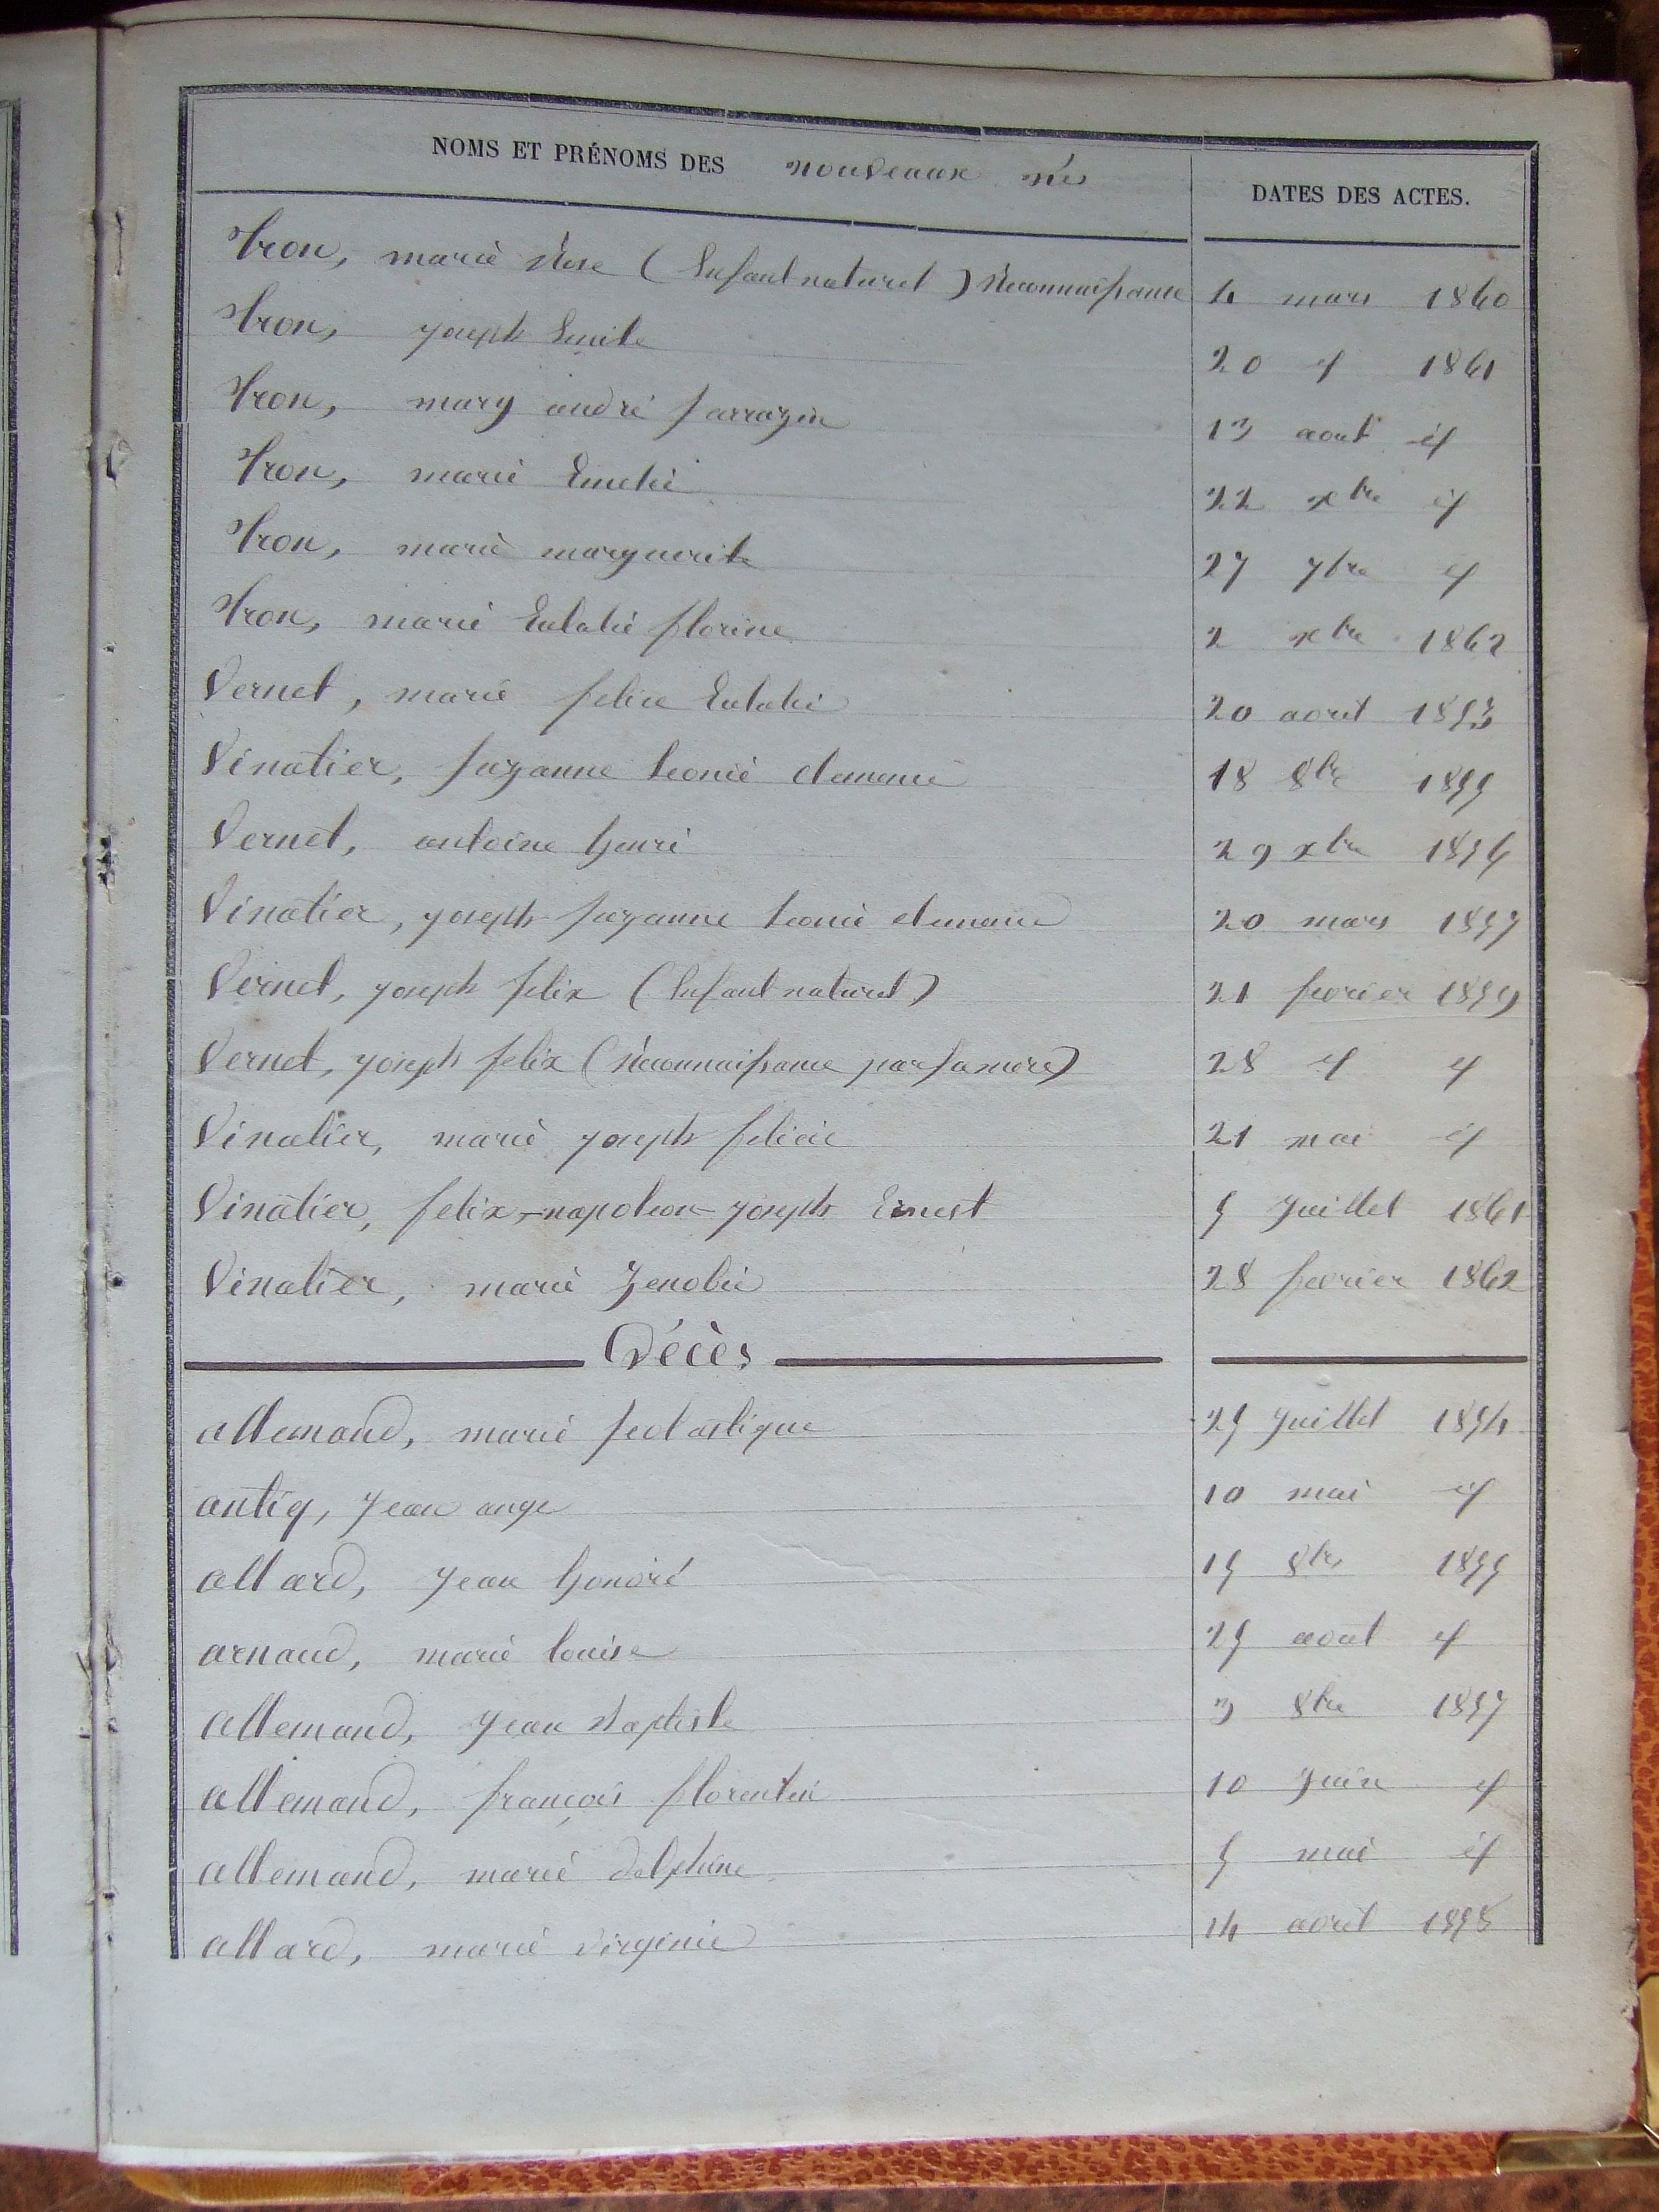 NOMS ET PRÉNOMS DES nouveaux nés DATES DES ACTES.
Tron, marie Rose (Enfant naturel) Reconnaissance 4 mars 1860
Tron, joseph Emile 20 id 1861
Tron, mary andré Sarrazin 13 aout id
Tron, marie Emelie 22 xbre id
Tron, marie marguerite 27 7bre id
Tron, marie Eulalie florine 2 xbre 1862
Vernet, marie felicie Eulalie 20 avril 1853
Vinatier, Suzanne Leonie clemence 18 8bre 1855
Vernet, antoine henri 29 xbre 1856
Vinatier, joseph Suzanne Leonie clemence 20 mars 1857
Vernet, joseph felix (Enfant naturel) 21 fevrier 1859
Vernet, joseph felix (Reconnaissance par sa mere) 28 id id
Vinatier, marie joseph felicie 21 mai id
Vinatier, felix-napoleon-joseph Ernest 5 juillet 1861
Vinatier, marie Zenobie 28 fevrier 1862
Décès
allemand, marie scolastique 25 juillet 1854
antiq, jean ange 10 mai id
allard, jean honoré 15 8bre 1855
arnaud, marie louise 25 aout id
allemand, jean Baptiste 3 8bre 1857
allemand, françois florentin 10 juin id
allemand, marie delphine 5 mai id
allard, marie virginie 14 avril 1858